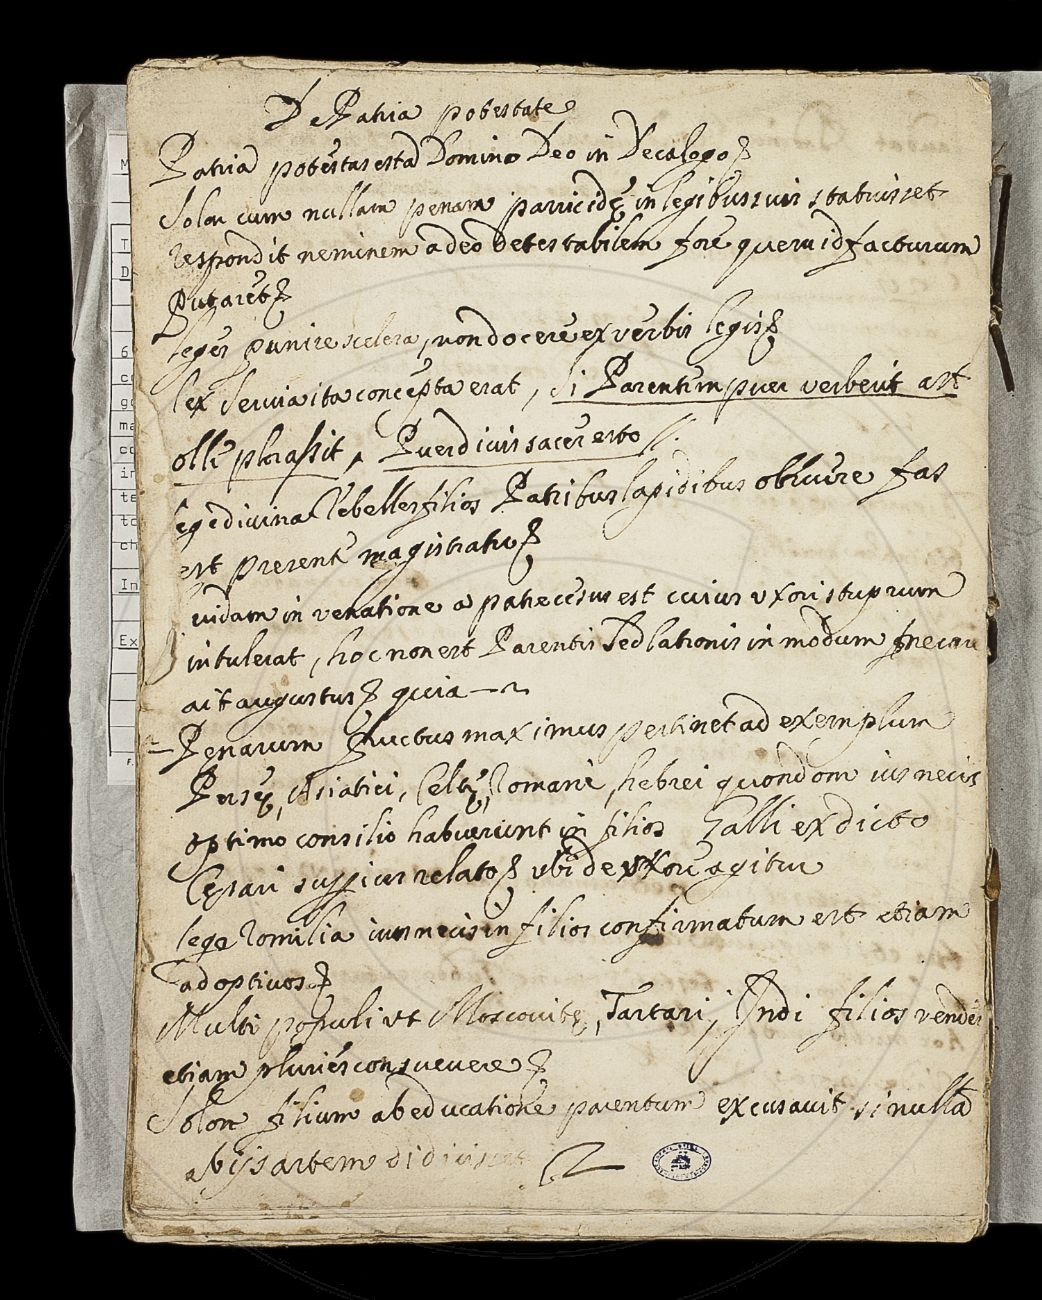 De Patria potestate
Patria potestas est a Domino Deo in Decalogo
Solon cum nullam penam parricidę in legibus suis statuisset
respondit neminem adeo detestabilem fore quem id facturum
putaret
leges punire scelera, non docere ex verbis legis
lex Servia ita concepta erat, si Parentem puer verberit ast
olle plorassit, Puer divis sacer esto
lege divina rebelles filios Patribus lapidibus obruere fas
est presente magistratu
uidam in venatione a patre cesus est cuius uxori stuprum
intulerat, hoc non est Parentis sed lationis in modum
ait augustus quia
Penarum fructus maximus pertinet ad exemplum
Persę, Asiatici, Celtę, Romani, hebrei quondam ius necis
optimo consilio habuerunt in filios Galli ex dicto
Cęsari supius relato ubi de uxore agitur
lege Romilia ius necis in filios confirmatum est etiam
adoptivos
Multi populi ut Moscovitę, Tartari, Indi filios
etiam pluries consuevere
Solon filium ab educatione parentum excusavit si nulla
ab ijs artem didicisset